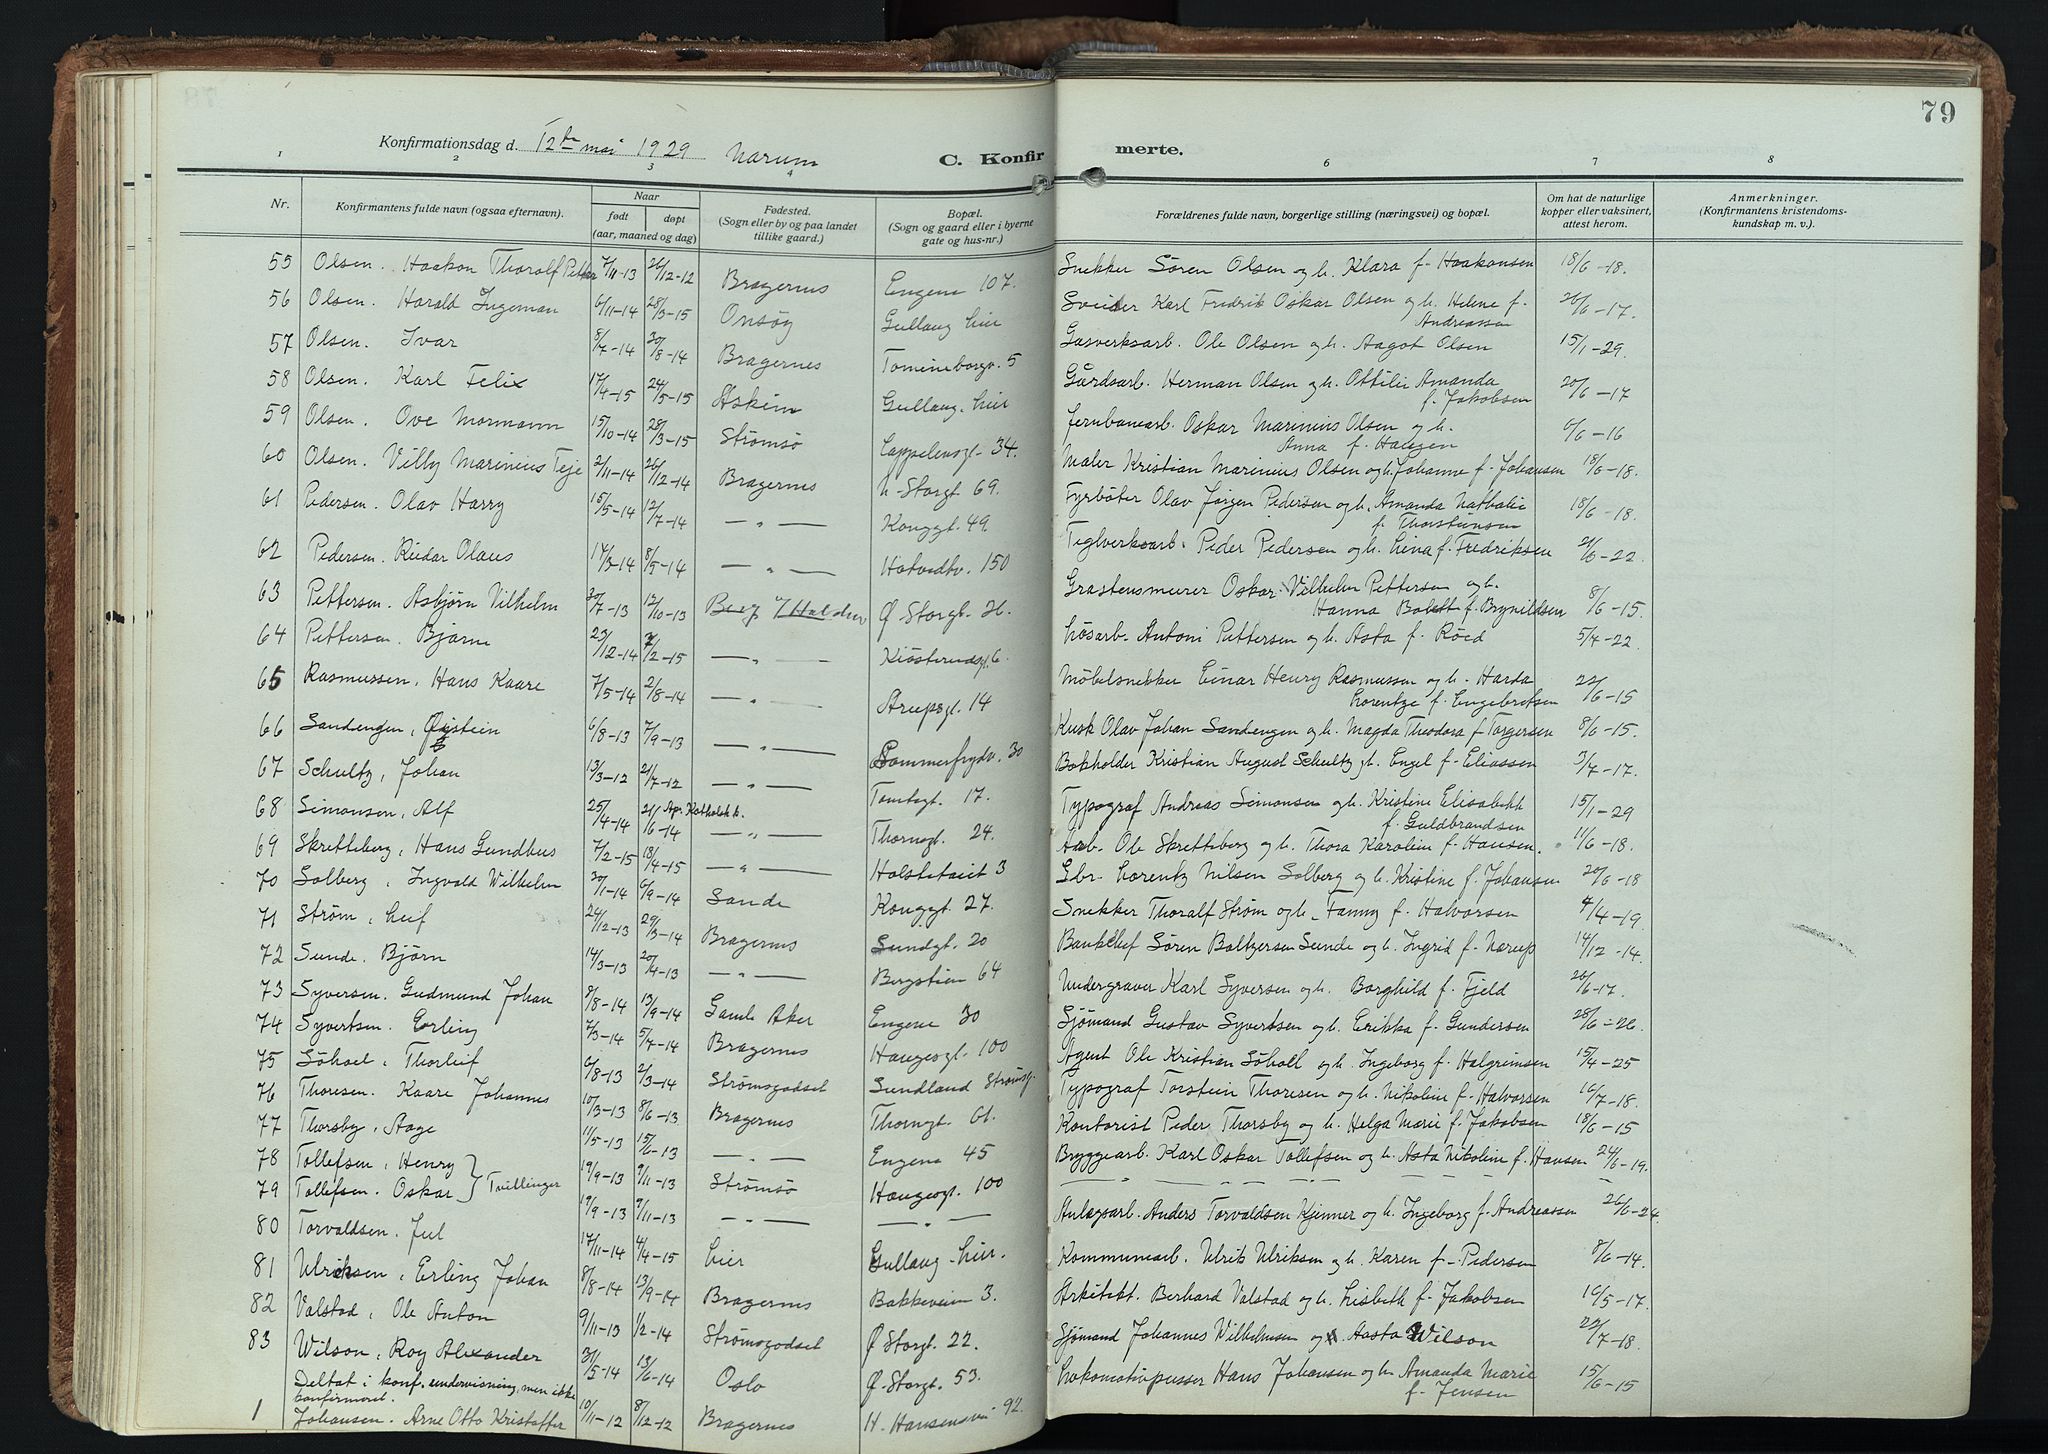 79
Konfirmationsdag d. 12te mai 1929 Narum
C. Konfirmerte.
1 2 3 4 6 7 8
Nr. Konfirmantens fulde navn (ogsaa efternavn). Naar født døpt (aar, maaned og dag) Fødested. (Sogn eller by og paa landet tillike gaard.) Bopæl. (Sogn og gaard eller i byerne gate og hus-nr.) Forældrenes fulde navn, borgerlige stilling (næringsvei) og bopæl. Om hat de naturlige kopper eller vaksinert, attest herom. Anmerkninger. (Konfirmantens kristendomskundskap m. v.).
55 Olsen. Haakon Thoralf Petter 7/11-13 26/12-12 Bragernes Engene 107. Snekker Sören Olsen og h. Klara f. Haakonsen 18/6-18.
56 Olsen. Harald Ingeman 6/11-14 28/3-15 Onsøy Gullaug Lier Sveiser Karl Fredrik Oskar Olsen og h. Helene f. Andreassen 26/6-17.
57 Olsen. Ivar 8/7-14 30/8-14 Bragernes Tomineborgv. 5 Gasverksarb. Ole Olsen og h. Aagot Olsen 15/1-29.
58 Olsen. Karl Felix 17/4-15 24/5-15 Askim Gullaug. Lier Gårdsarb. Herman Olsen og h. Ottilie Amanda f. Jakobsen 20/6-17
59 Olsen. Ove Mormann 15/10-14 28/3-15 Strømsø Cappelensgt. 34. Jernbanearb. Oskar Marinius Olsen og h. Anna f. Haugen 6/6-16
60 Olsen. Villy Marinius Teje 2/11-14 26/12-14 Bragernes N. Storgt. 69. Maler Kristian Marinius Olsen og h. Johanne f. Johansen 18/6-18.
61 Pedersen. Olav Harry 15/5-14 12/7-14 — " — Konggt. 49. Fyrbøter Olav Jørgen Pedersen og h. Amanda Nathalie f. Thorstensen 18/6-18.
62 Pedersen. Reidar Olaus 14/3-14 8/5-14 — " — Hotvedtv. 150 Teglverksarb. Peder Pedersen og h. Lina f. Fredriksen 21/6-22
63 Pettersen. Asbjørn Vilhelm 20/7-13 12/10-13 Berg v/ Halden Ø. Storgt. 26. Grastensmurer Oskar Vilhelm Pettersen og h. Hanna Bolett f. Brynildsen 8/6-15.
64 Pettersen. Bjarne 23/12-14 7/2-15 — " — Kiøsterudsgt. 6. Løsarb. Antoni Pettersen og h. Asta f. Röed 5/4-22
65 Rasmussen, Hans Kaare 7/5-14 2/8-14 — " — Arupsgt. 14 Möbelsnekker Einar Henry Rasmussen og h. Harda Lorentze f. Engebretsen 22/6-15
66 Sandengen, Øystein 6/8-13 7/9-13 — " — Sommerfrydv. 30 Kusk Olav Johan Sandengen og h. Magda Theodora f. Torgersen 8/6-15.
67 Schultz, Johan 13/3-12 21/7-12 — " — Tomtegt. 17. Bokholder Kristian August Schultz og h. Engel f. Eliassen 3/7-17.
68 Simonsen, Alf 25/4-14 21/6-14 Ap. Katholsk k. — " — Thornegt. 24. Typograf Andreas Simonsen og h. Kristine Elisabeth f. Guldbrandsen 15/1-29
69 Skretteberg, Hans Gundhus 7/2-15 18/4-15 — " — Holstetveit 3 Arb. Ole Skretteberg og h. Thora Karoline f. Hansen. 11/6-18.
70 Solberg, Ingvald Wilhelm 20/1-14 6/9-14 Sande Konggt. 27. Gbr. Lorentz Nilsen Solberg og h. Kristine f. Johansen 20/6-18
71 Strøm, Leif 24/12-13 29/3-14 Bragernes Sundgt. 20 Snekker Thoralf Strøm og h. Fanny f. Halvorsen 4/4-19.
72 Sunde. Bjørn 14/3-13 20/4-13 — " — Bergstien 64 Bankchef Sören Baltzersen Sunde og h. Ingrid f. Nærup 14/12-14.
73 Syversen. Gudmund Johan 8/8-14 13/9-14 Gamle Aker Engene 30 Undergraver Karl Syversen og h. Borghild f. Fjeld 26/6-17.
74 Syvertsen. Erling 7/3-14 5/7-14 Bragernes Haugesgt. 100 Sjømand Gustav Syvertsen og h. Erikka f. Gundersen 28/6-26.
75 Söhoel, Thorleif 6/8-13 2/3-14 Strømsgodset Sundland Strømsg. Agent Ole Kristian Söholt og h. Ingeborg f. Halgrimsen 15/4-25
76 Thoresen. Kaare Johannes 10/3-13 8/6-13 Bragernes Thornegt. 61. Typograf Torstein Thoresen og h. Nikoline f. Halvorsen 16/7-18.
77 Thorsby, Aage 11/5-13 15/6-13 — " — Engene 45 Kontorist Peder Thorsby og h. Helga Marie f. Jakobsen 18/6-15
78 Tollefsen, Henry 19/9-13 9/11-13 Strømsø Haugesgt. 100 Bryggearb. Karl Oskar Tollefsen og h. Asta Nikoline f. Hansen 24/6-19.
79 Tollefsen. Oskar } Tvillinger 19/9-13 9/11-13 — " — — " —
80 Torvaldsen. Jul 17/11-14 4/4-15 Lier Gullaug. Lier. Anlegsarb. Anders Torvaldsen Kjenner og h. Ingeborg f. Andreassen 26/6-24.
81 Ulriksen, Erling Johan 8/8-14 13/9-14 Bragernes Bakkeveien 3. Kommunearb. Ulrik Ulriksen og h. Karen f. Pedersen 8/6-14.
82 Valstad, Ole Anton 9/11-13 1/2-14 Strømsgodset Ø. Storgt. 22. Arkitekt. Berhard Valstad og h. Lisbeth f. Jakobsen 16/5-17.
83 Wilson, Roy Alexander 31/5-14 13/6-14 Oslo Ø. Storgt. 53. Sjømand Johannes Wilhelmsen og Aasta Wilson 23/7-18.
Deltat i konf. undervisning, men ikke konfirmeret.
1 Johansen. Arne Otto Kristoffer 10/11-12 8/12-12 Bragernes H. Hansensvei 92. Lokomotivpusser Hans Johansen og h. Amanda Marie f. Jensen 15/6-15